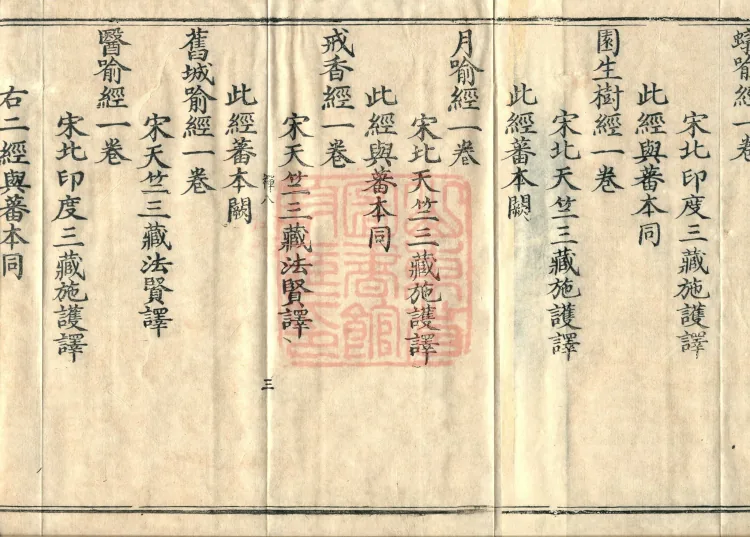 蟻喻經一卷
宋北印度三藏施護譯
此經與蕃本同
園生樹經一卷
宋北天竺三藏施護譯
此經蕃本闕
月喻經一卷
宋北天竺三藏施護譯
此經與蕃本同
戒香經一卷
宋天竺三藏法賢譯
三
此經蕃本闕
舊城喻經一卷
宋天竺三藏法賢譯
醫喻經一卷
宋北印度三藏施護譯
右二經與蕃本同